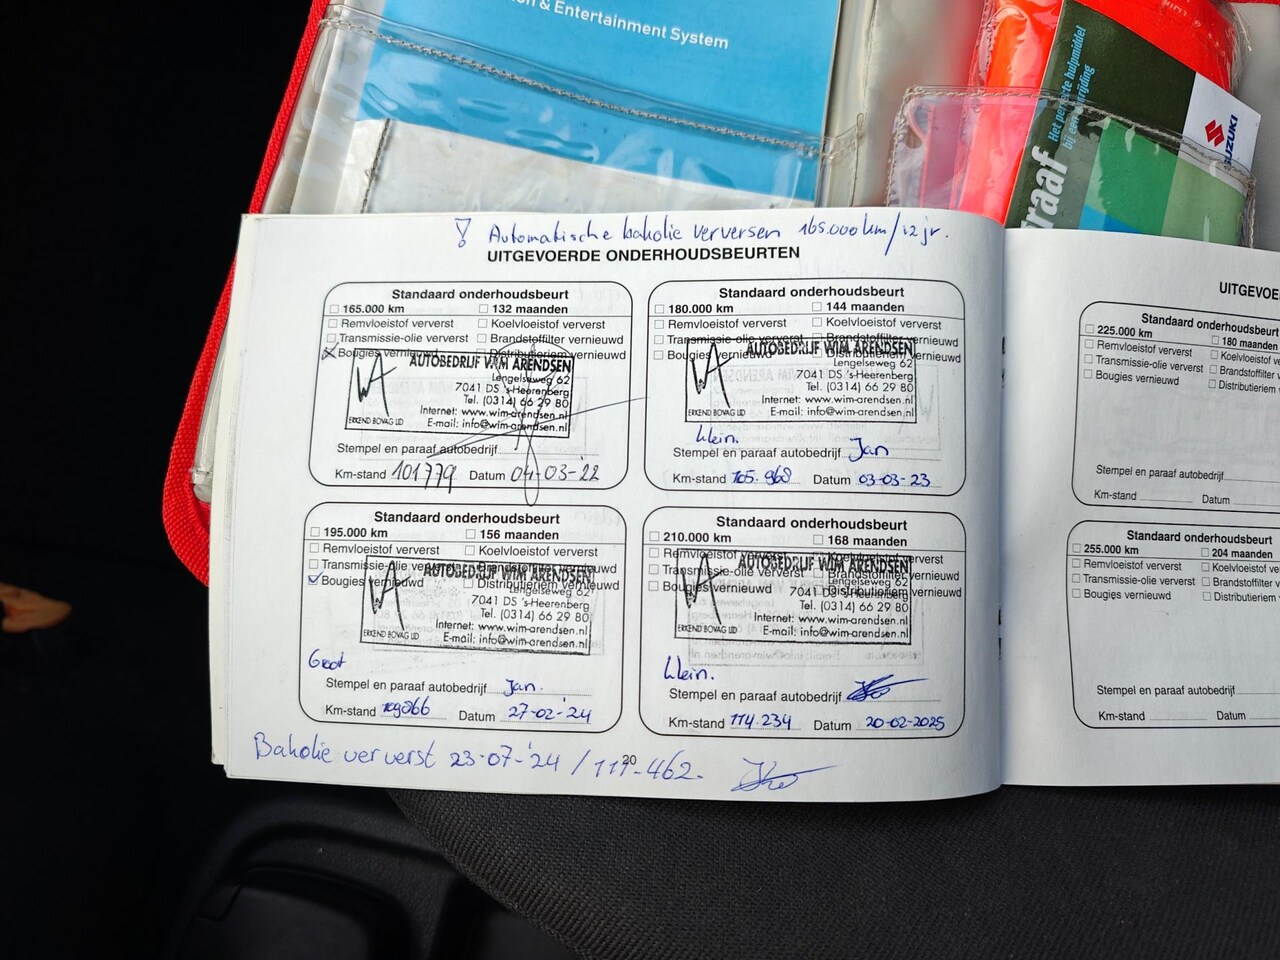 on & Entertainment System
Het perfecte hulpmiddel
bij een
raaf
SUZUKI
! Automatische bakolie verversen 165.000 km/12 jr.
UITGEVOERDE ONDERHOUDSBEURTEN
Standaard onderhoudsbeurt
165.000 km 132 maanden
Remvloeistof ververst Koelvloeistof ververst
Transmissie-olie ververst Brandstoffilter vernieuwd
Bougies vernieuwd Distributieriem vernieuwd
AUTOBEDRIJF WIM ARENDSEN
Lengelseweg 62
7041 DS 's-Heerenberg
Tel. (0314) 66 29 80
Internet: www.wim-arendsen.nl
ERKEND BOVAG LID E-mail: info@wim-arendsen.nl
Stempel en paraaf autobedrijf
Km-stand 101779 Datum 04-03-'22
Standaard onderhoudsbeurt
180.000 km 144 maanden
Remvloeistof ververst Koelvloeistof ververst
Transmissie-olie ververst Brandstoffilter vernieuwd
Bougies vernieuwd Distributieriem vernieuwd
AUTOBEDRIJF WIM ARENDSEN
Lengelseweg 62
7041 DS 's-Heerenberg
Tel. (0314) 66 29 80
Internet: www.wim-arendsen.nl
ERKEND BOVAG LID E-mail: info@wim-arendsen.nl
klein.
Stempel en paraaf autobedrijf Jan
Km-stand 105.968 Datum 03-03-23
Standaard onderhoudsbeurt
195.000 km 156 maanden
Remvloeistof ververst Koelvloeistof ververst
Transmissie-olie ververst Brandstoffilter vernieuwd
Bougies vernieuwd Distributieriem vernieuwd
AUTOBEDRIJF WIM ARENDSEN
Lengelseweg 62
7041 DS 's-Heerenberg
Tel. (0314) 66 29 80
Internet: www.wim-arendsen.nl
ERKEND BOVAG LID E-mail: info@wim-arendsen.nl
Groot
Stempel en paraaf autobedrijf Jan.
Km-stand 109866 Datum 27-02-'24
Standaard onderhoudsbeurt
210.000 km 168 maanden
Remvloeistof ververst Koelvloeistof ververst
Transmissie-olie ververst Brandstoffilter vernieuwd
Bougies vernieuwd Distributieriem vernieuwd
AUTOBEDRIJF WIM ARENDSEN
Lengelseweg 62
7041 DS 's-Heerenberg
Tel. (0314) 66 29 80
Internet: www.wim-arendsen.nl
ERKEND BOVAG LID E-mail: info@wim-arendsen.nl
klein.
Stempel en paraaf autobedrijf
Km-stand 114.234 Datum 20-02-2025
Bakolie ververst 23-07-'24 / 111-462.
20
UITGEVOE
Standaard onderhoudsbeurt
225.000 km 180 maanden
Remvloeistof ververst Koelvloeistof ve
Transmissie-olie ververst Brandstoffilter
Bougies vernieuwd Distributieriem
Stempel en paraaf autobedrijf
Km-stand Datum
Standaard onderhoudsbeurt
255.000 km 204 maanden
Remvloeistof ververst Koelvloeistof ve
Transmissie-olie ververst Brandstoffilter
Bougies vernieuwd Distributieriem
Stempel en paraaf autobedrijf
Km-stand Datum